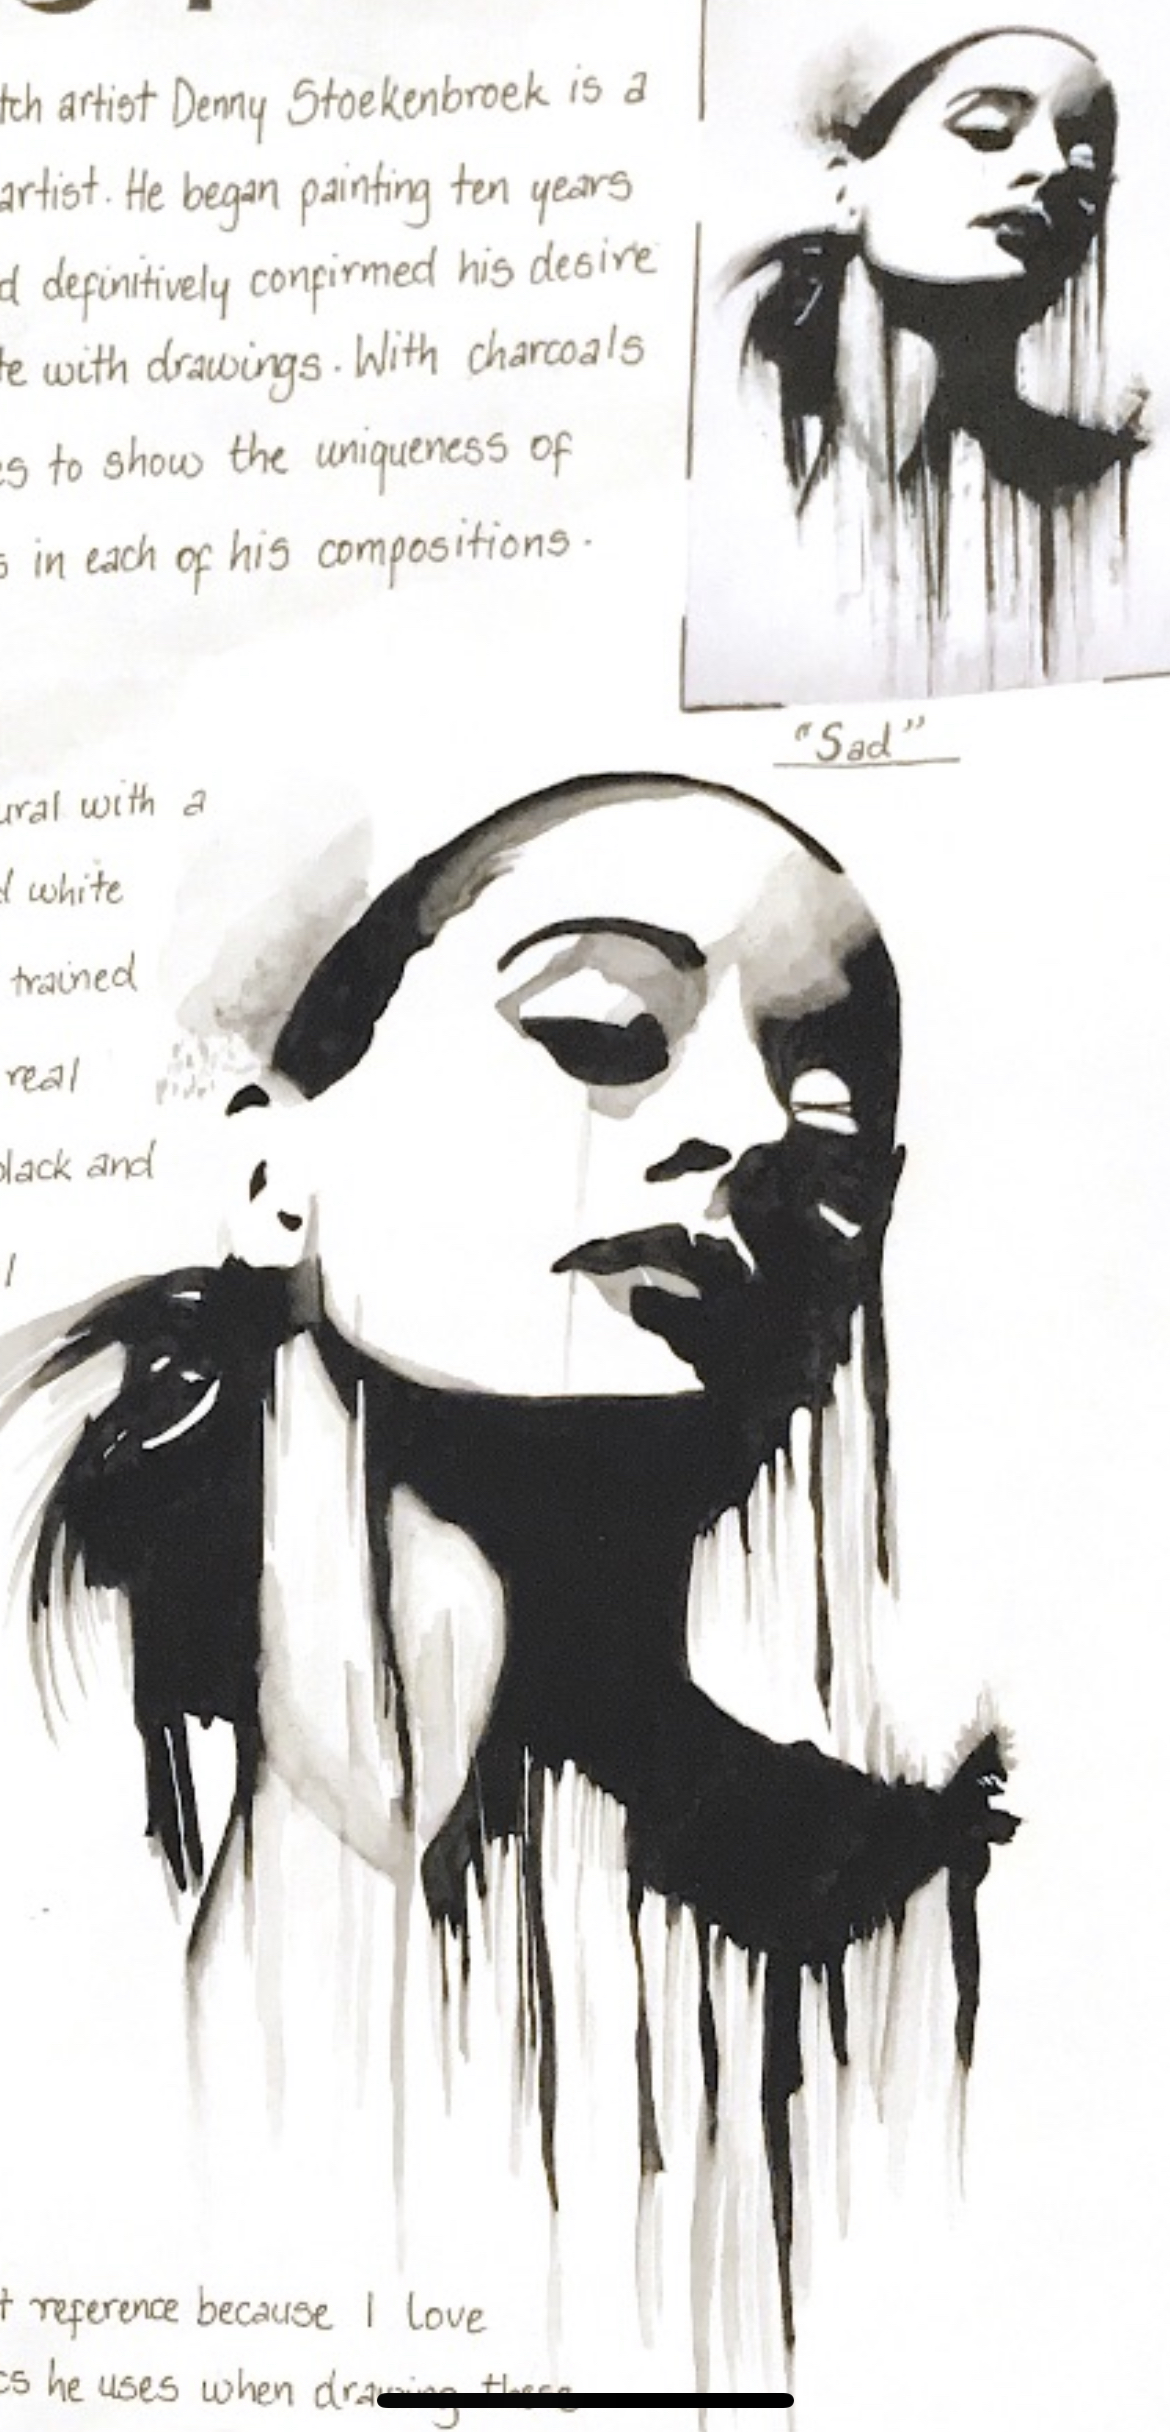 tch artist Denny Stoekenbroek is a
artist. He began painting ten years
d definitively confirmed his desire
te with drawings. With charcoals
es to show the uniqueness of
s in each of his compositions.
"Sad"
ural with a
d white
trained
real
black and
l
t reference because I love
cs he uses when drawing these